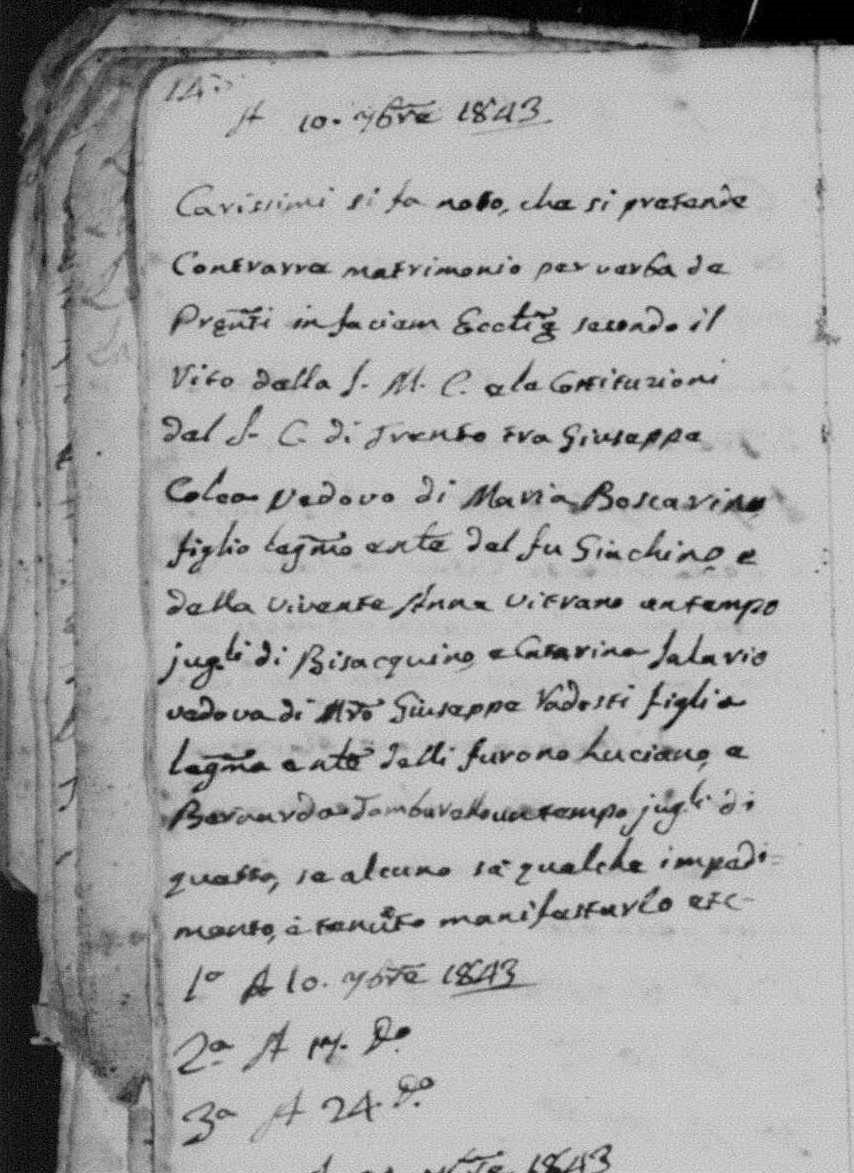 14
A 10. 7bre 1843
Carissimi si fa noto, che si pretende
Contrarre matrimonio per verba de
Prēnti in faciem Ecclię secondo il
Rito della S. M. C. e le Costituzioni
del S. C. di Trento tra Giuseppe
Colca vedovo di Maria Boscarino
figlio legmo e nle del fu Giachino, e
della vivente Anna Vitrano un tempo
jugli di Bisacquino, e Catarina Salario
vedova di Mro Giuseppe Vadesti figlia
legma e nle delli furono Luciano, e
Bernarda Tamburello un tempo jugli di
questa, se alcuno sà qualche impedi=
mento, è tenuto manifestarlo etc-
1a A 10. 7bre 1843
2a A 17. Do
3a A 24. Do
1843